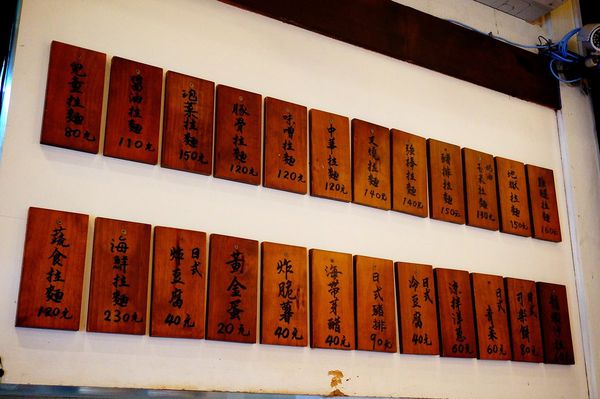 兒童拉麵 80元
醬油拉麵 110元
泡菜拉麵 150元
豚骨拉麵 120元
味噌拉麵 120元
中華拉麵 120元
叉燒拉麵 140元
強棒拉麵 140元
豬排拉麵 150元
拉麵 130元
地獄拉麵 150元
拉麵 160元
蔬食拉麵 120元
海鮮拉麵 230元
日式炸豆腐 40元
黃金蛋 20元
炸脆薯 40元
海帶芽醋 40元
日式豬排 90元
日式冷豆腐 40元
涼拌洋蔥 60元
日式 60元
日式可樂餅 80元